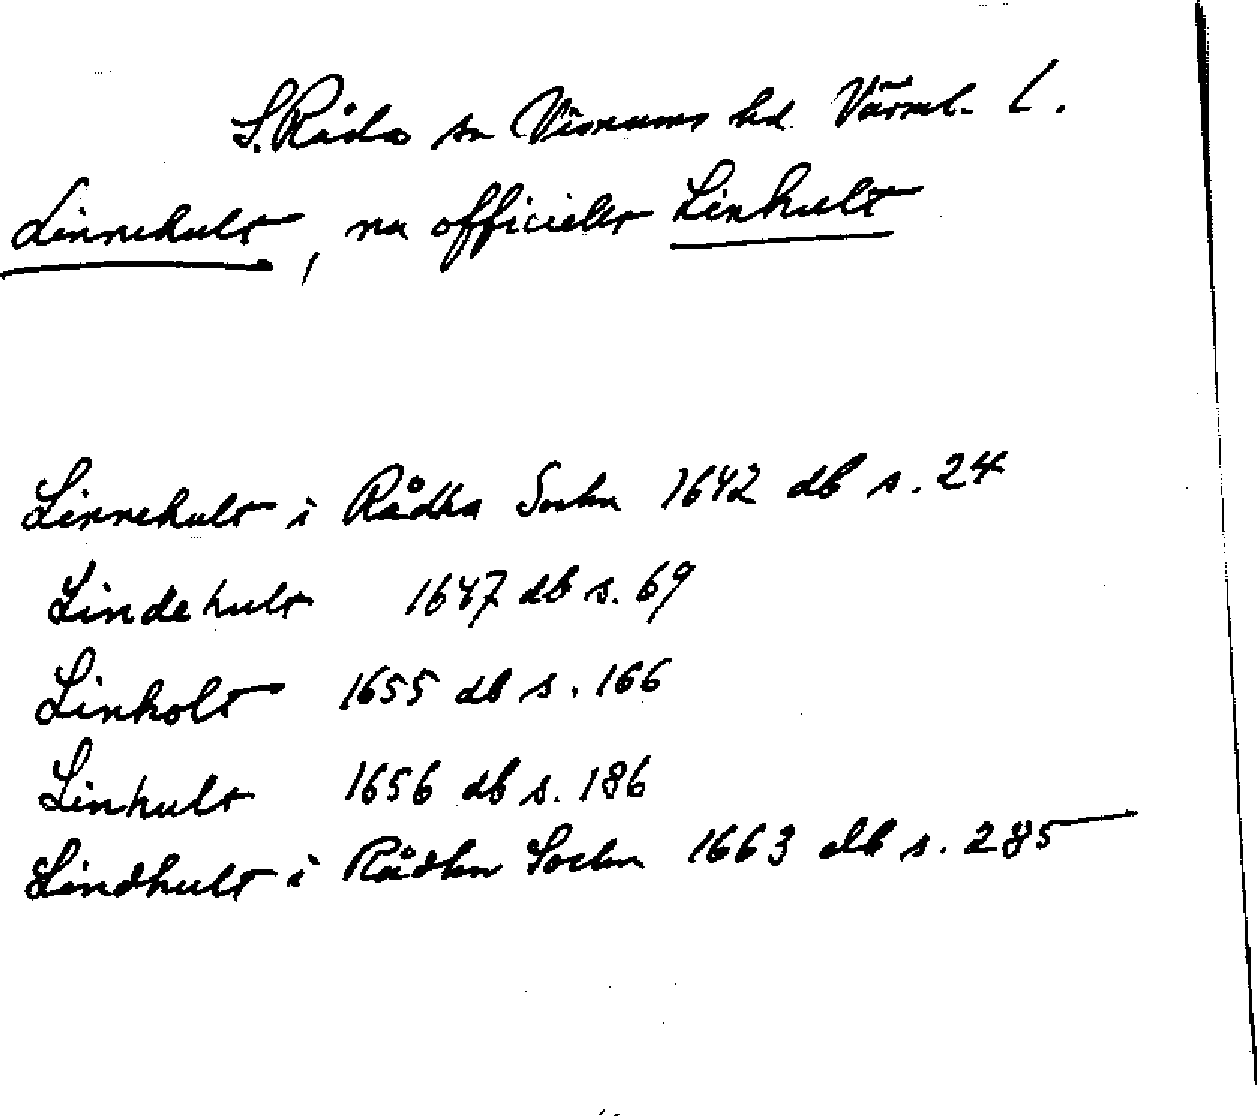 S. Råda sn Visnums hd Värml. l.
Linnehult, nu officiellt Linhult
Linnehult i Rådha Sochn 1642 db s. 24
Lindehult 1647 db s. 69
Linholt 1655 db s. 166
Linhult 1656 db s. 186
Lindhult i Rådhn Sochn 1663 db s. 285